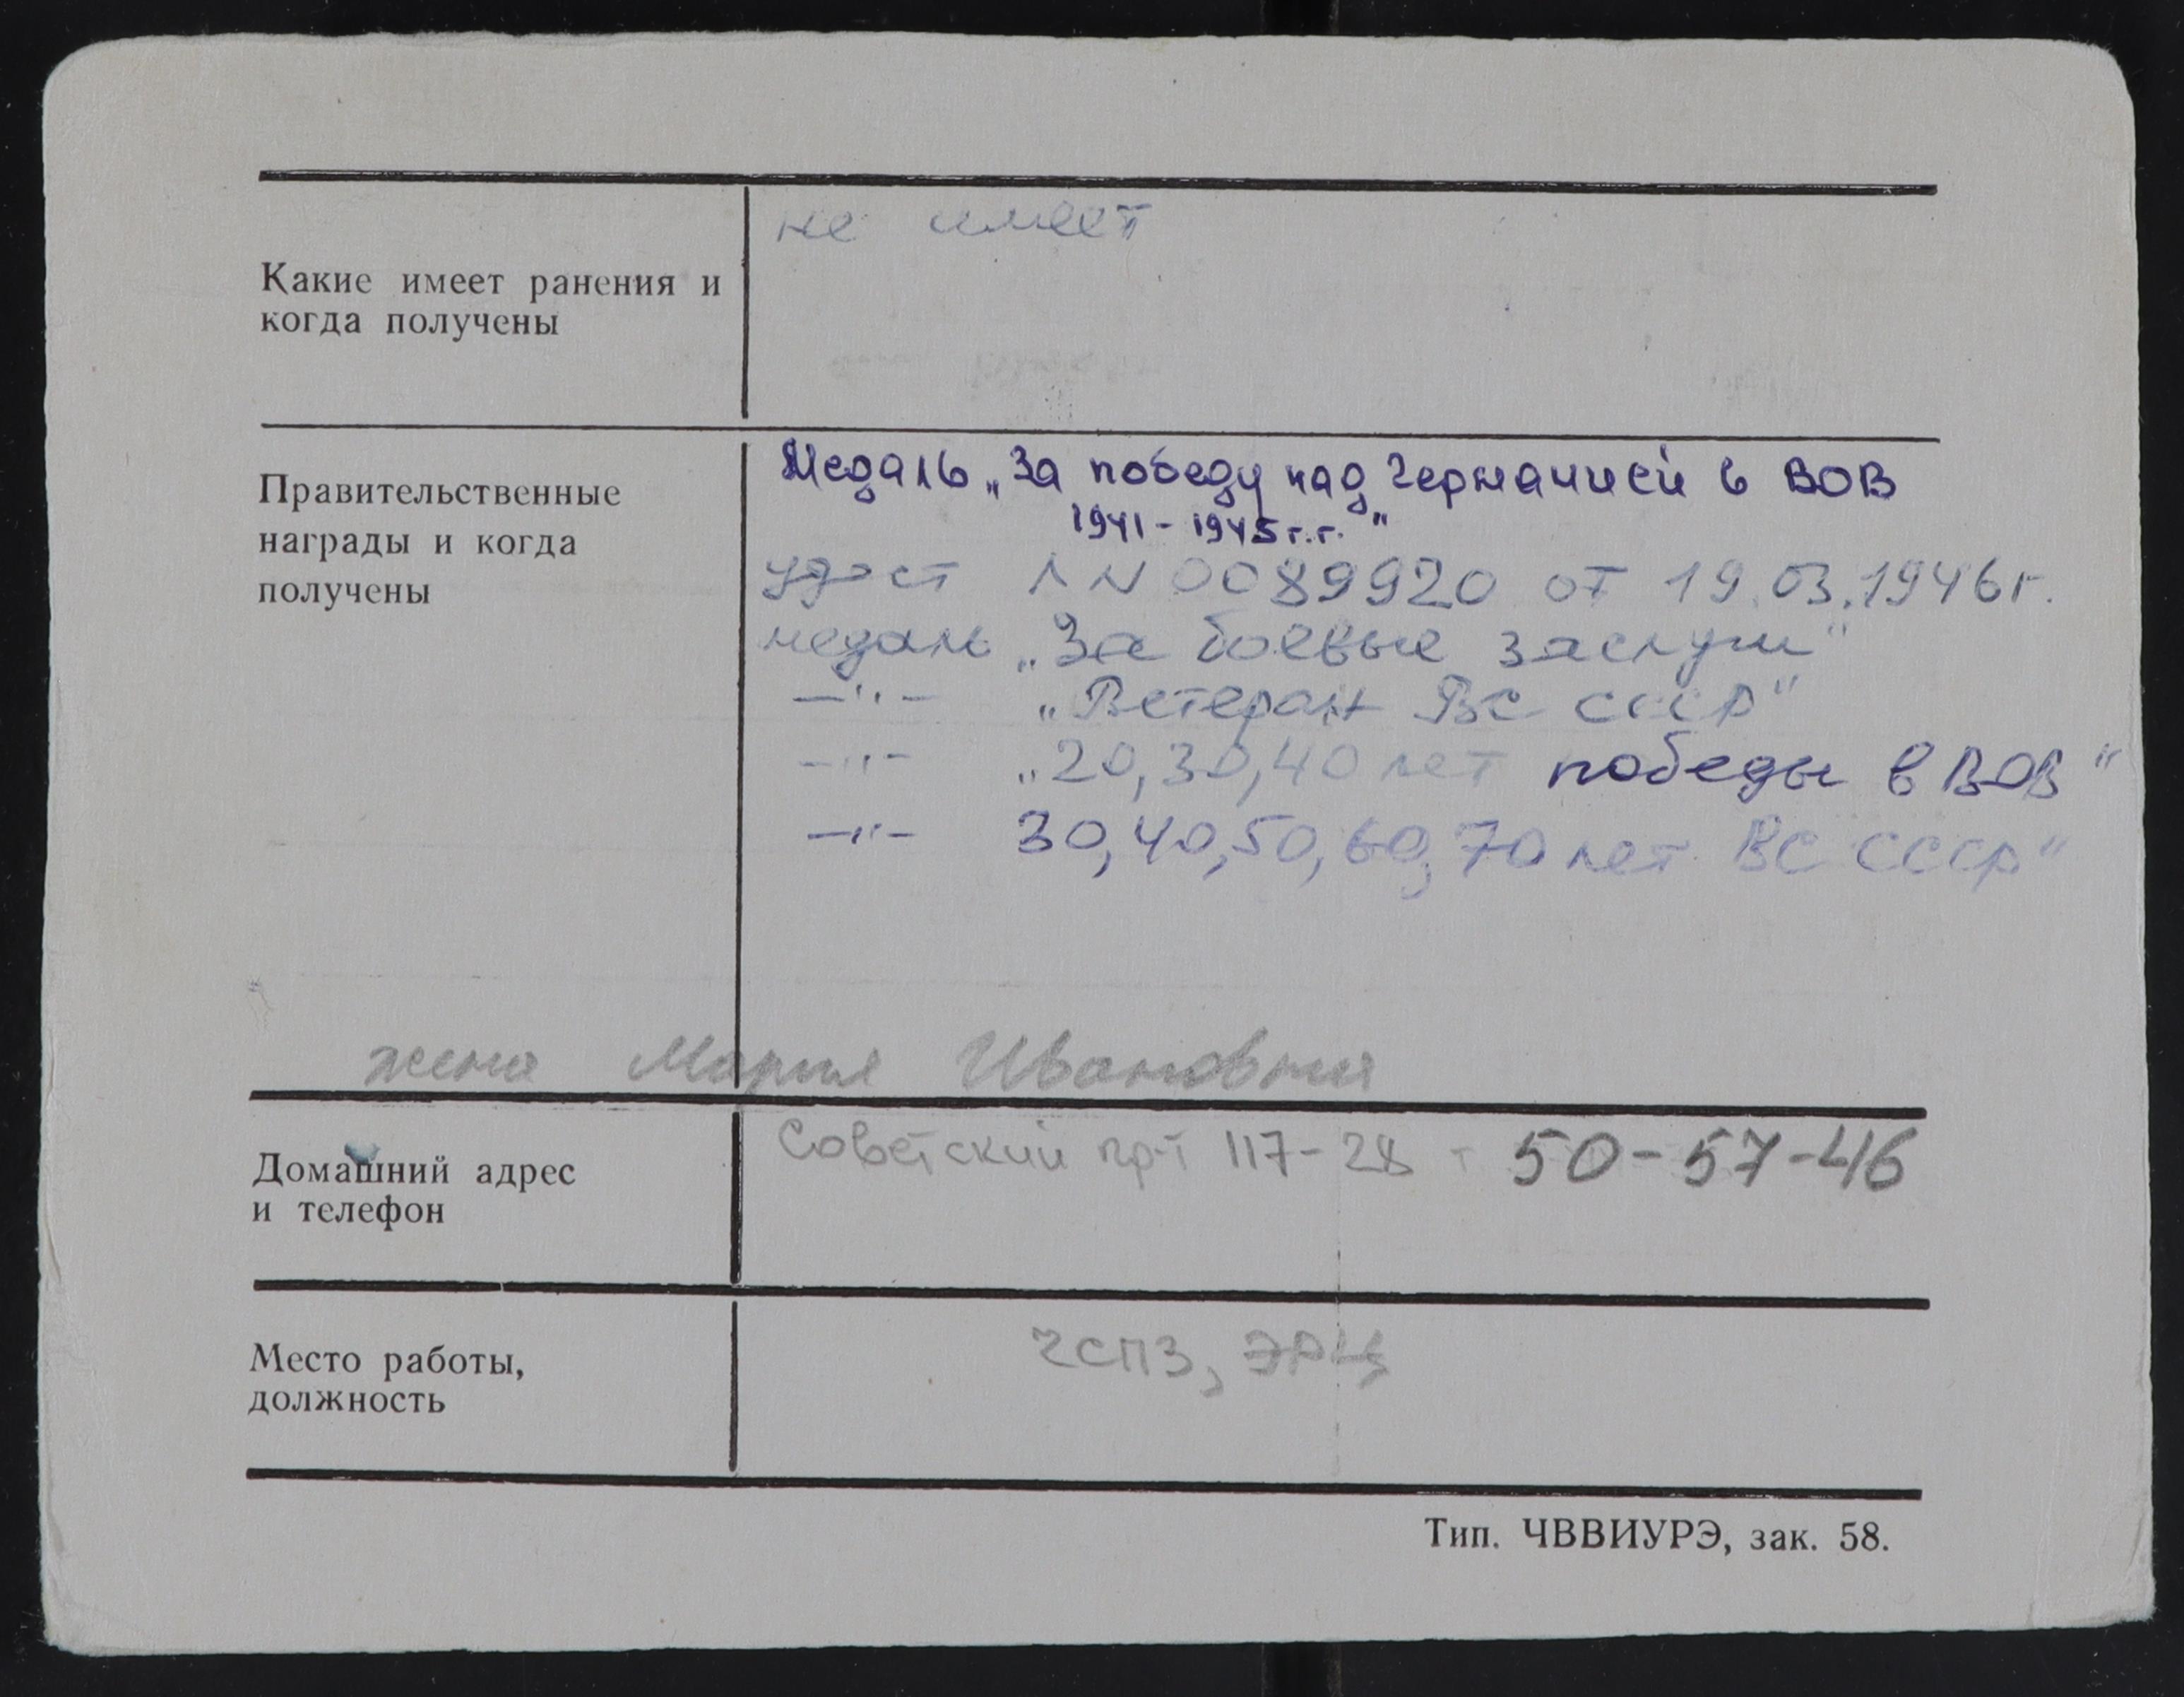 не имеет
Какие имеет ранения и
когда получены
Медаль „За победу над Германией в ВОВ
1941 - 1945 г.г. "
Правительственные
награды и когда
получены
удост ЛN 0089920 от 19.03.1946г.
медаль „За боевые заслуги"
—"— „Ветеран ВС СССР"
—"— „20, 30, 40 лет победы в ВОВ"
—"— 30, 40, 50, 60, 70 лет ВС СССР"
жена Мария Ивановна
Советский пр-т 117-28 т 50-57-46
Домашний адрес
и телефон
ЧСПЗ, ЭРЦ
Место работы,
должность
Тип. ЧВВИУРЭ, зак. 58.